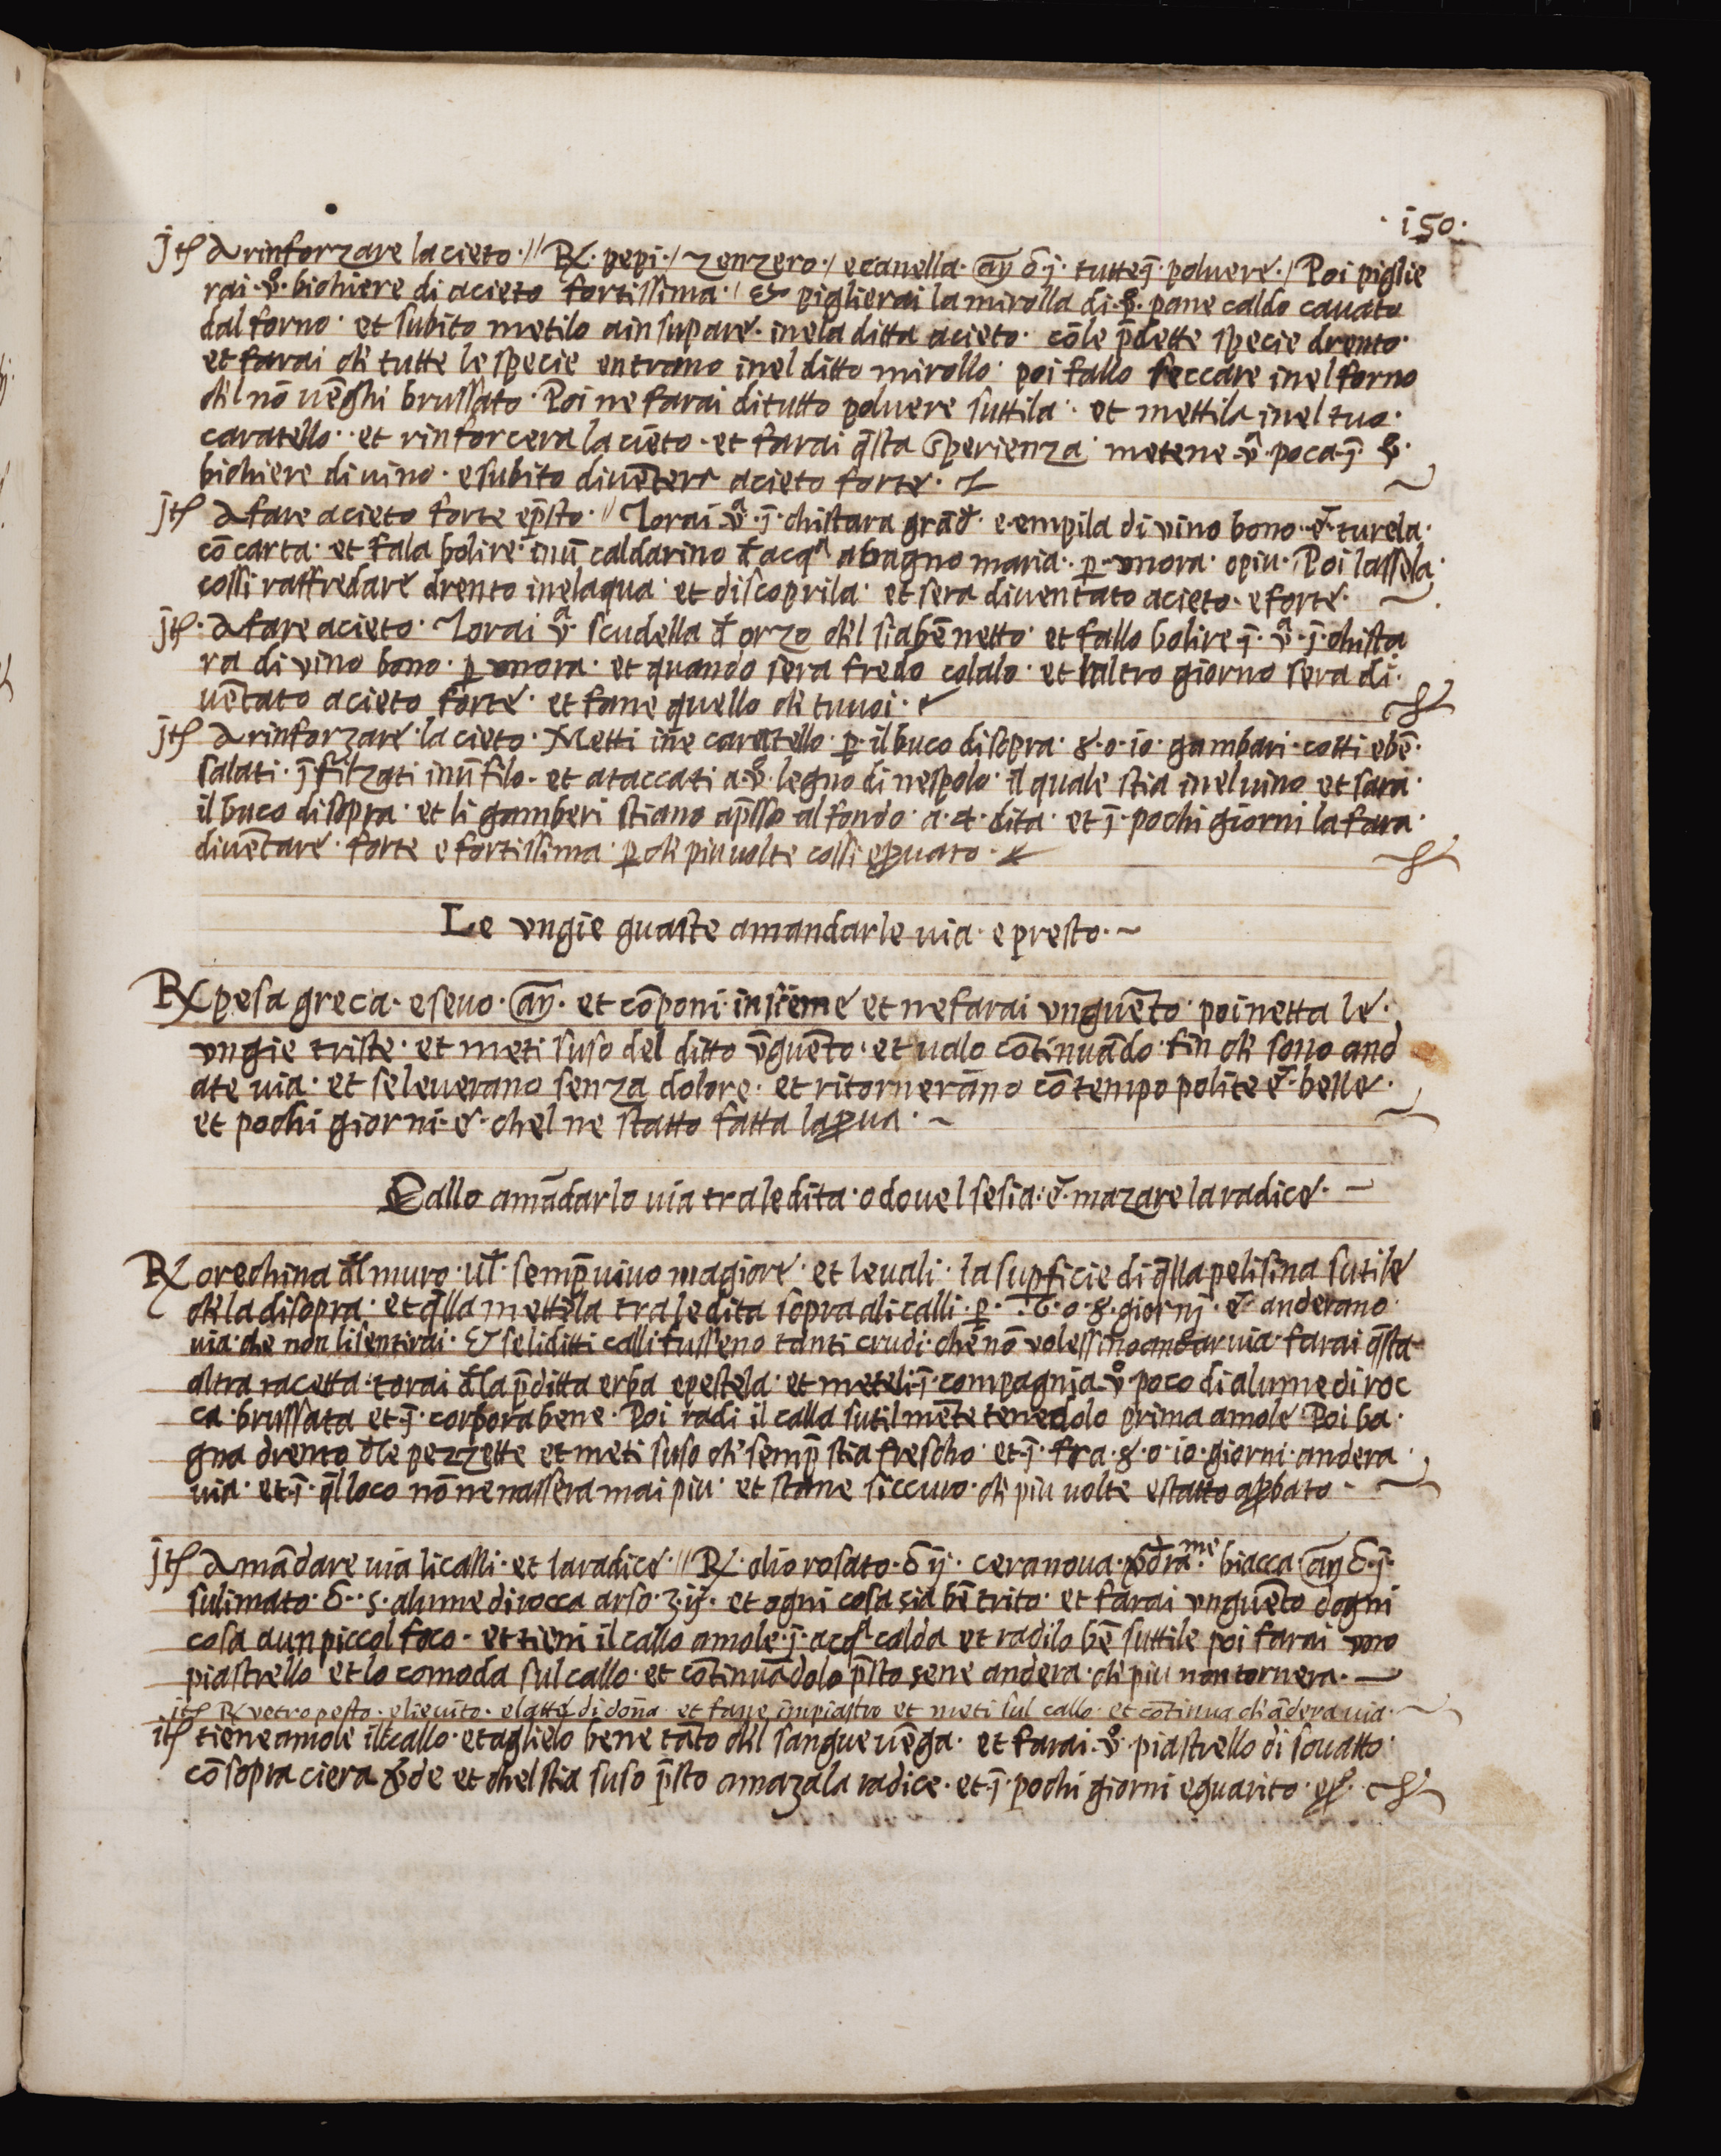 · i50 ·
jtʃ A rinforzare lacieto · // R/. pepi · / zenzero · / ecanella · añ ʒ · j · tutte ī polvere · / Poi piglie
rai · vº · bichiere di acieto fortissima · / et piglierai la mirolla di · vº · pane caldo cavato
dal forno · et subito metilo ainsupare · inela ditta acieto · cōle p̄dette specie drento ·
et farai ch' tutte le specie entrano inel ditto mirollo · poi fallo seccare inel forno
ch'l nō vēghi brussato · Poi ne farai di tutto polvere suttila · et mettila inel tuo ·
caratello · et rinforcera lacieto · et farai q̄sta sperienza · metene · vª · poca · ī · vº ·
bichiere di vino · e subito diventera acieto forte ·
jtʃ A fare acieto forte e p̄sto · // Torai · vª · ī · chistara grād' · e · empila di vino bono · et · turela ·
cō carta · et fala bolire · inū caldarino d' acqª abagno maria · p̱ · unora · opiu · Poi lassela ·
cossi raffredare drento inelaqua · et discoprila · et sera diventato acieto · e forte ·
jtʃ · A fare acieto · Torai vª scudella d' orzo ch'l sia bē netto · et fallo bolire · ī · vª · ī · chista
ra di vino bono · p̱ unora · et quando sera fredo colalo · et laltro giorno sera di ·
uētato acieto forte · et fane quello ch' tu uoi ·
jtʃ A rinforzare lacieto · Metti in e caratello · p̱ · il buco disopra · 8 · o · io · gambari · cotti e bē ·
salati · ī filzati inū filo · et ataccati a · vº · legno di nespolo · il quale stia inel uino et sara ·
il buco disopra · et li gamberi stiano ap̄sso al fondo · a · 4 · dita · et ī · pochi giorni la fara ·
diventare · forte e fortissima · p̱ch' piu uolte cossi e p̱uato ·
Le vngie guaste amandarle uia · e presto · ~
R/ pesa greca · e seuo · añ · et cōponi insieme et ne farai vnguēto · poi netta le ·
vngie triste · et meti suso del ditto v̄guēto · et ualo cōtinuādo fin ch' sono and
ate uia · et se leuerano senza dolore · et ritornerāno cō tempo polite et · belle ·
et pochi giorni · e · chel ne statto fatta la p̱ua · ~
Callo amādarlo uia tra le dita · o douel se sia · et · mazare la radice · ~
R/ orechina d'l muro · ul' · semp̱ uiuo magiore · et leuali · la sup̱ficie di q̄lla pelisina sutile
ch' la disopra · et q̄lla mettela tra le dita sopra ali calli · p̱ · 6 · o · 8 · giornj · et · anderano ·
uia · che non li sentirai · Et se li ditti calli fusseno tanti crudi · che nō volessino andar uia · farai q̄sta
altra racetta · torai d'la p̄ditta erba e pestela · et meteli · ī · compagnia · vº poco di alume di roc
ca · brussata et · ī · corpora bene · Poi radi il callo sutilmēte tenedolo prima amole · Poi ba ·
gna drento d'le pezzette et meti suso ch' semp̱ stia frescho · et · ī · fra · 8 · o · io · giorni · andera ·
uia · et · ī · q̄l loco nō ne nassera mai piu · et stane siccuro · ch' piu uolte e statto ap̱bato ·
jtʃ Amādare uia li calli · et la radice · // R/ · olio rosato · ʒ ij · cera noua · biacca · añ ʒ · j ·
sulimato · ʒ · s · alume di rocca arso · ʒ · ij · et ogni cosa sia bē trito · et farai vnguēto dogni
cosa a un piccol foco · et tieni il callo amole · ī · acqª calda et radilo bē suttile poi farai uno
piastrello et lo comoda sul callo · et cōtinuādolo p̄sto sene andera · ch' piu non tornera ·
jtʃ R/ vetro pesto · e lieuito · e latte di dōna et fane impiastro et meti sul callo · et cōtinua ch' ādera uia · ~
itʃ tiene amole il callo · et aglielo bene tāto ch'l sangue uēga · et farai · vº · piastrello di souatto ·
cō sopra ciera v'de et chel stia suso p̄sto amazala radice · et · ī · pochi giorni e guarito · e p̱ ·